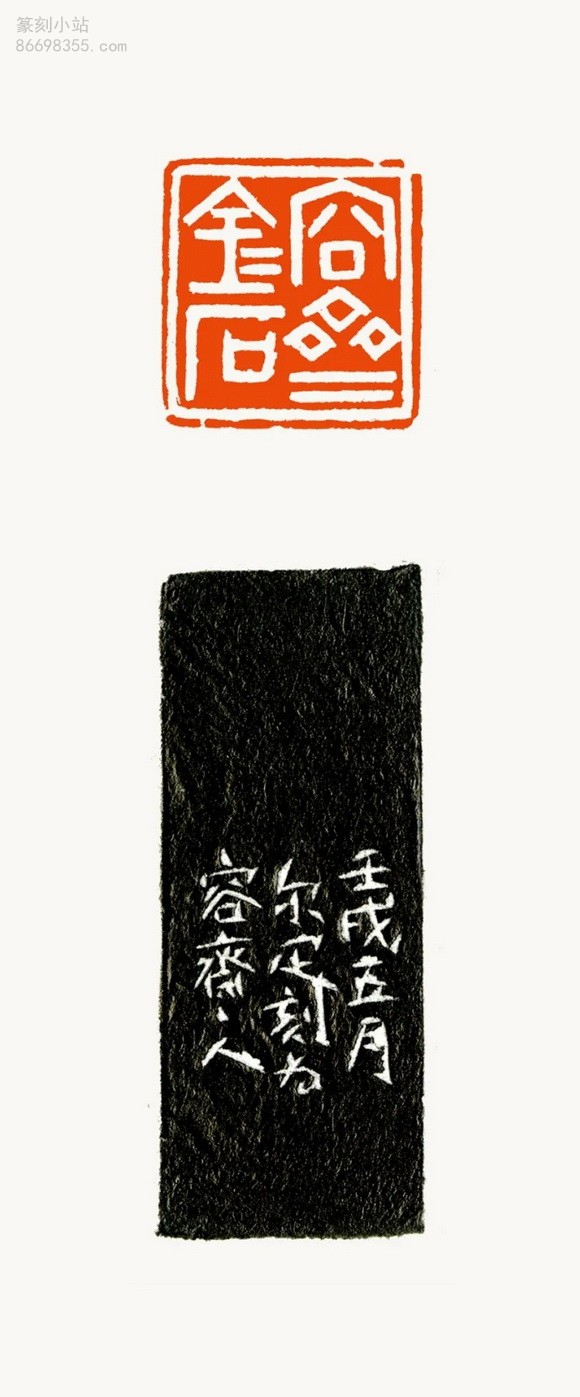 篆刻小站
86698355.com
容齋
金石
壬戌五月
尔定刻为
容齋之人